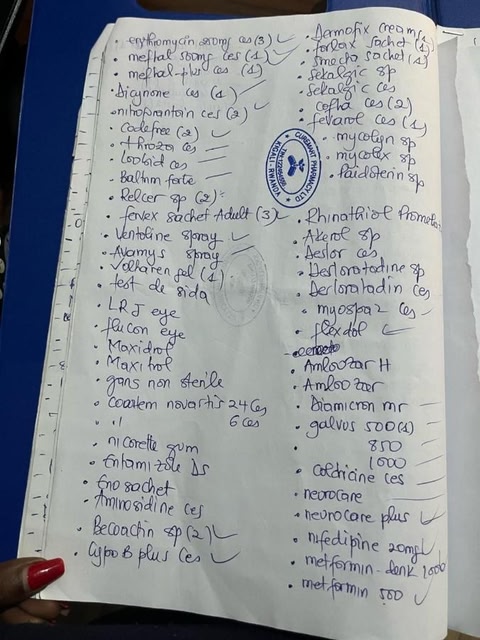 erythromycin 250mg ces (3)
meftal 500mg ces (1)
meftal-plus ces (1)
Dicynone ces (1)
nitrofurantoin ces (2)
codefree (2)
Throza ces
Loobid ces
Balthm forte
Relcer sp (2)
fervex sachet Adult (3)
Ventoline spray
Avamys spray
Voltaren gel (1)
test de sida
LRJ eye
flucon eye
Maxidrol
Maxitrol
gans non sterile
Coartem novartis 24 Ces
11 6 Ces
nicorette gum
Entamizole DS
Eno sachet
Aminosidine ces
Becoactin sp (2)
Cypro B plus ces
Dermofix cream (1)
forlax sachet (1)
smecta sachet (1)
Sekalgic sp
Sekalgic ces
Cofta ces (2)
fevarol ces (1)
mycolyn sp
mycolex sp
Paidoterin sp
Rhinathiol Prometa
Akerol sp
Deslor ces
Desloratadine sp
Derloratadin ces
myospaz ces
flexdol
Amlozar H
Amlozar
Diamicron mr
galvus 500 (1)
850
1000
Coldricine ces
neurocare
neurocare plus
nifedipine 20mg
metformin-denk 1000
metformin 500
PHARMACY LTD
KIGALI - RWANDA